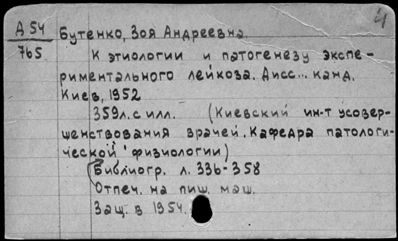 4
А 54
765
Бутенко, Зоя Андреевна
К этиологии и патогенезу экспе-
риментального лейкоза. Дисс... канд.
Киев, 1952
359л. с илл. (Киевский ин-т усовер-
шенствования врачей. Кафедра патологи-
ческой физиологии)
(Библиогр. л. 336-358
Отпеч. на пиш. маш.
Защ. в 1954.